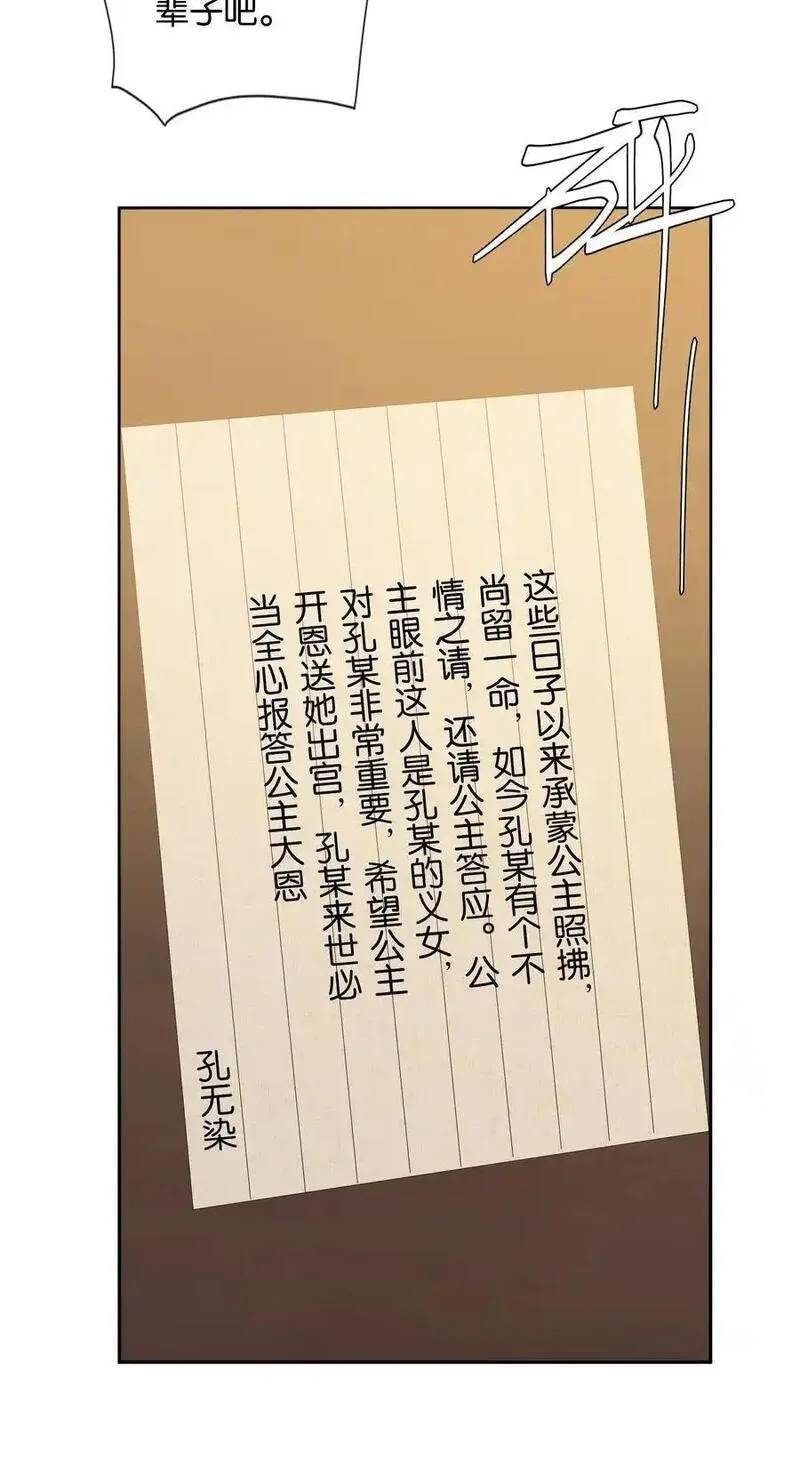 辈子吧。
砰
这些日子以来承蒙公主照拂，
尚留一命，如今孔某有个不
情之请，还请公主答应。公
主眼前这人是孔某的义女，
对孔某非常重要，希望公主
开恩送她出宫，孔某来世必
当全心报答公主大恩
孔无染